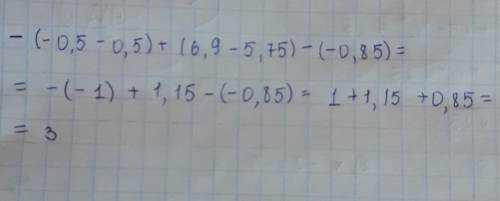 - (-0,5 - 0,5) + (6,9 - 5,75) - (-0,85) =
= - (-1) + 1,15 - (-0,85) = 1 + 1,15 + 0,85 =
= 3